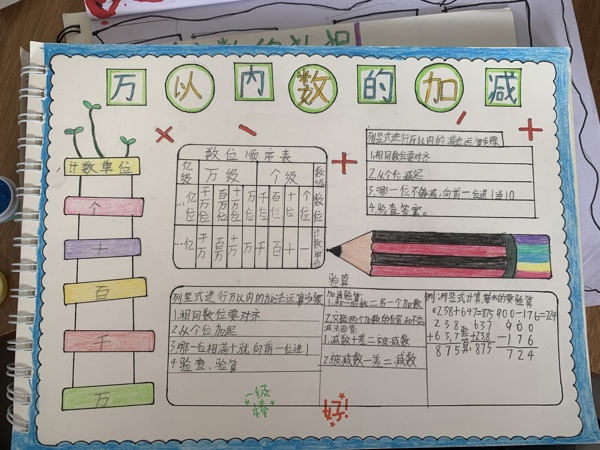 万以内数的加减
计数单位
个
十
百
千
万
数位顺序表
亿级 万级 个级 数级
…亿位 千万位 百万位 十万位 万位 千位 百位 十位 个位 数位
…亿 千万 百万 十万 万 千 百 十 一 计数单位
列竖式进行万以内的减法运算步骤
1.相同数位要对齐
2.从个位减起
3.哪一位不够减,向前一位退1当10
4.验查答案。
列竖式进行万以内的加法运算步骤
1.相同数位要对齐
2.从个位加起
3.哪一位相满十就向前一位进1
4.验查、验算
验算
加法验算:
1.和一加数二另一个加数
减法验算:
1.减数+差二被减数
2.被减数一差二减数
例:列竖式计算,带※的要验算
※238+637=875 900-176=724
238 637 900
+637 +238 -176
875 875 724
验算:
一级棒
好!